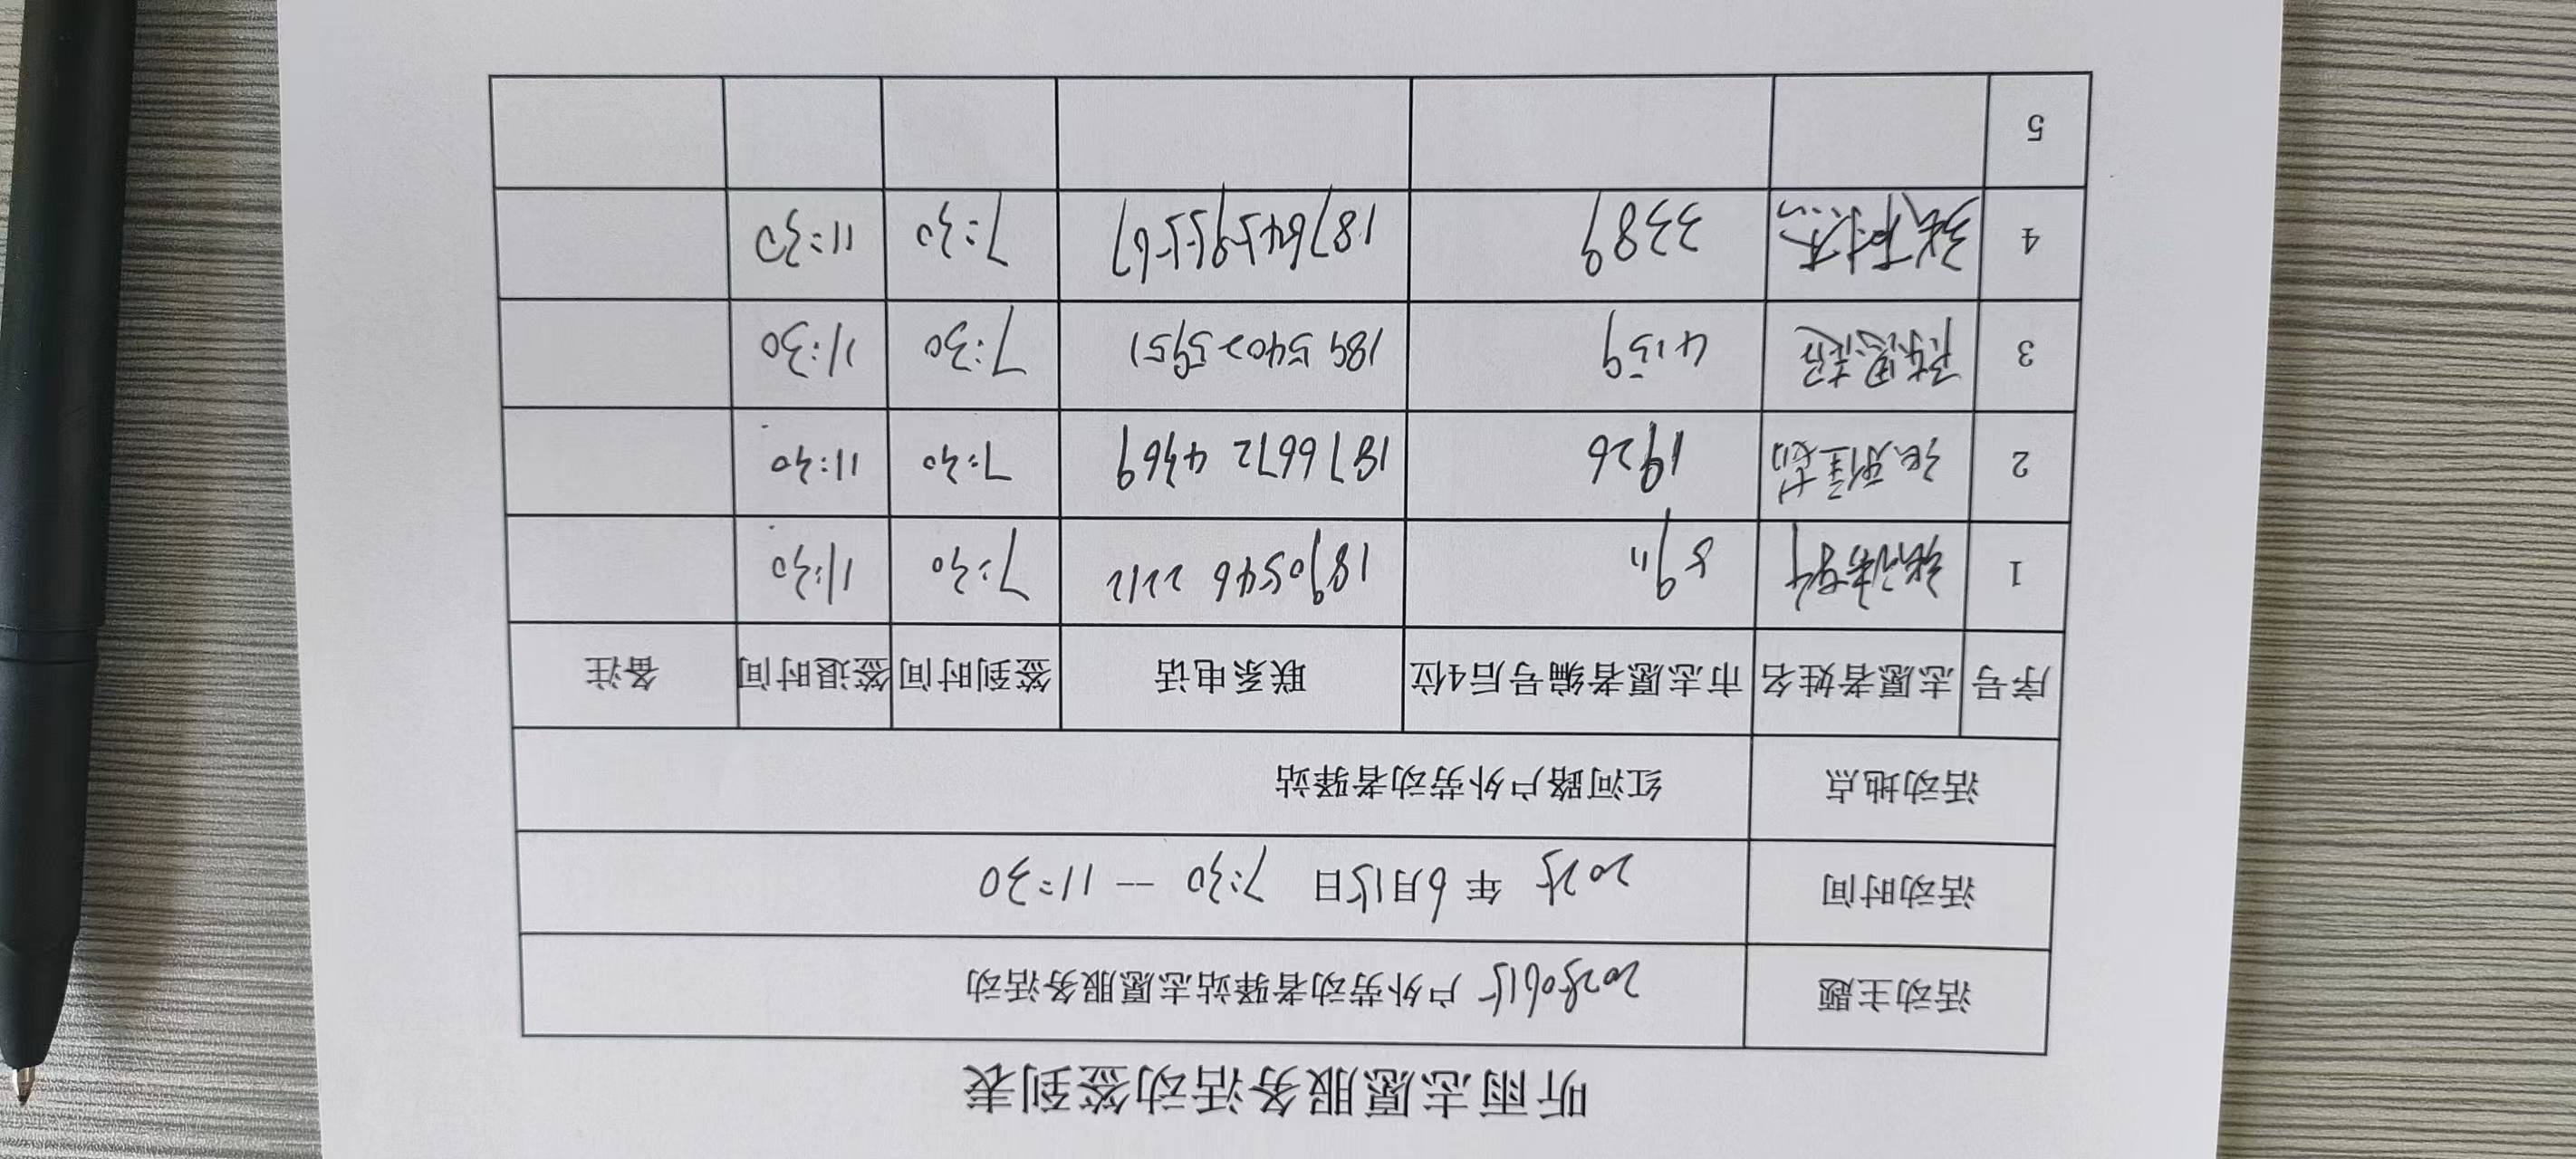 听雨志愿服务活动签到表
活动主题 20250615 户外劳动者驿站志愿服务活动
活动时间 2025 年 6月15日 7:30 — 11:30
活动地点 红河路户外劳动者驿站
序号 志愿者姓名 市志愿者编号后4位 联系电话 签到时间 签退时间 备注
1 8911 18905462212 7:30 11:30
2 1926 1876672 4369 7:30 11:30
3 陈思超 4159 189 5402 5951 7:30 11:30
4 3389 18764595567 7:30 11:30
5